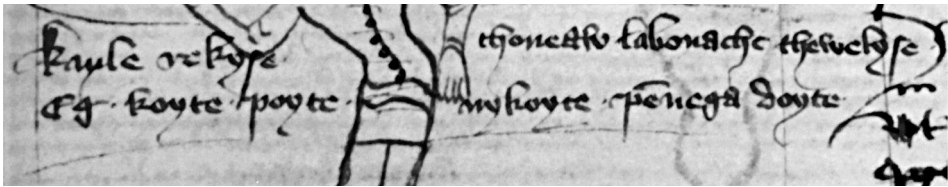 Kayle rekyse thoneaw labonache thewelyse
Eg · koyte · poyte · nykoyte · pēnega doyte